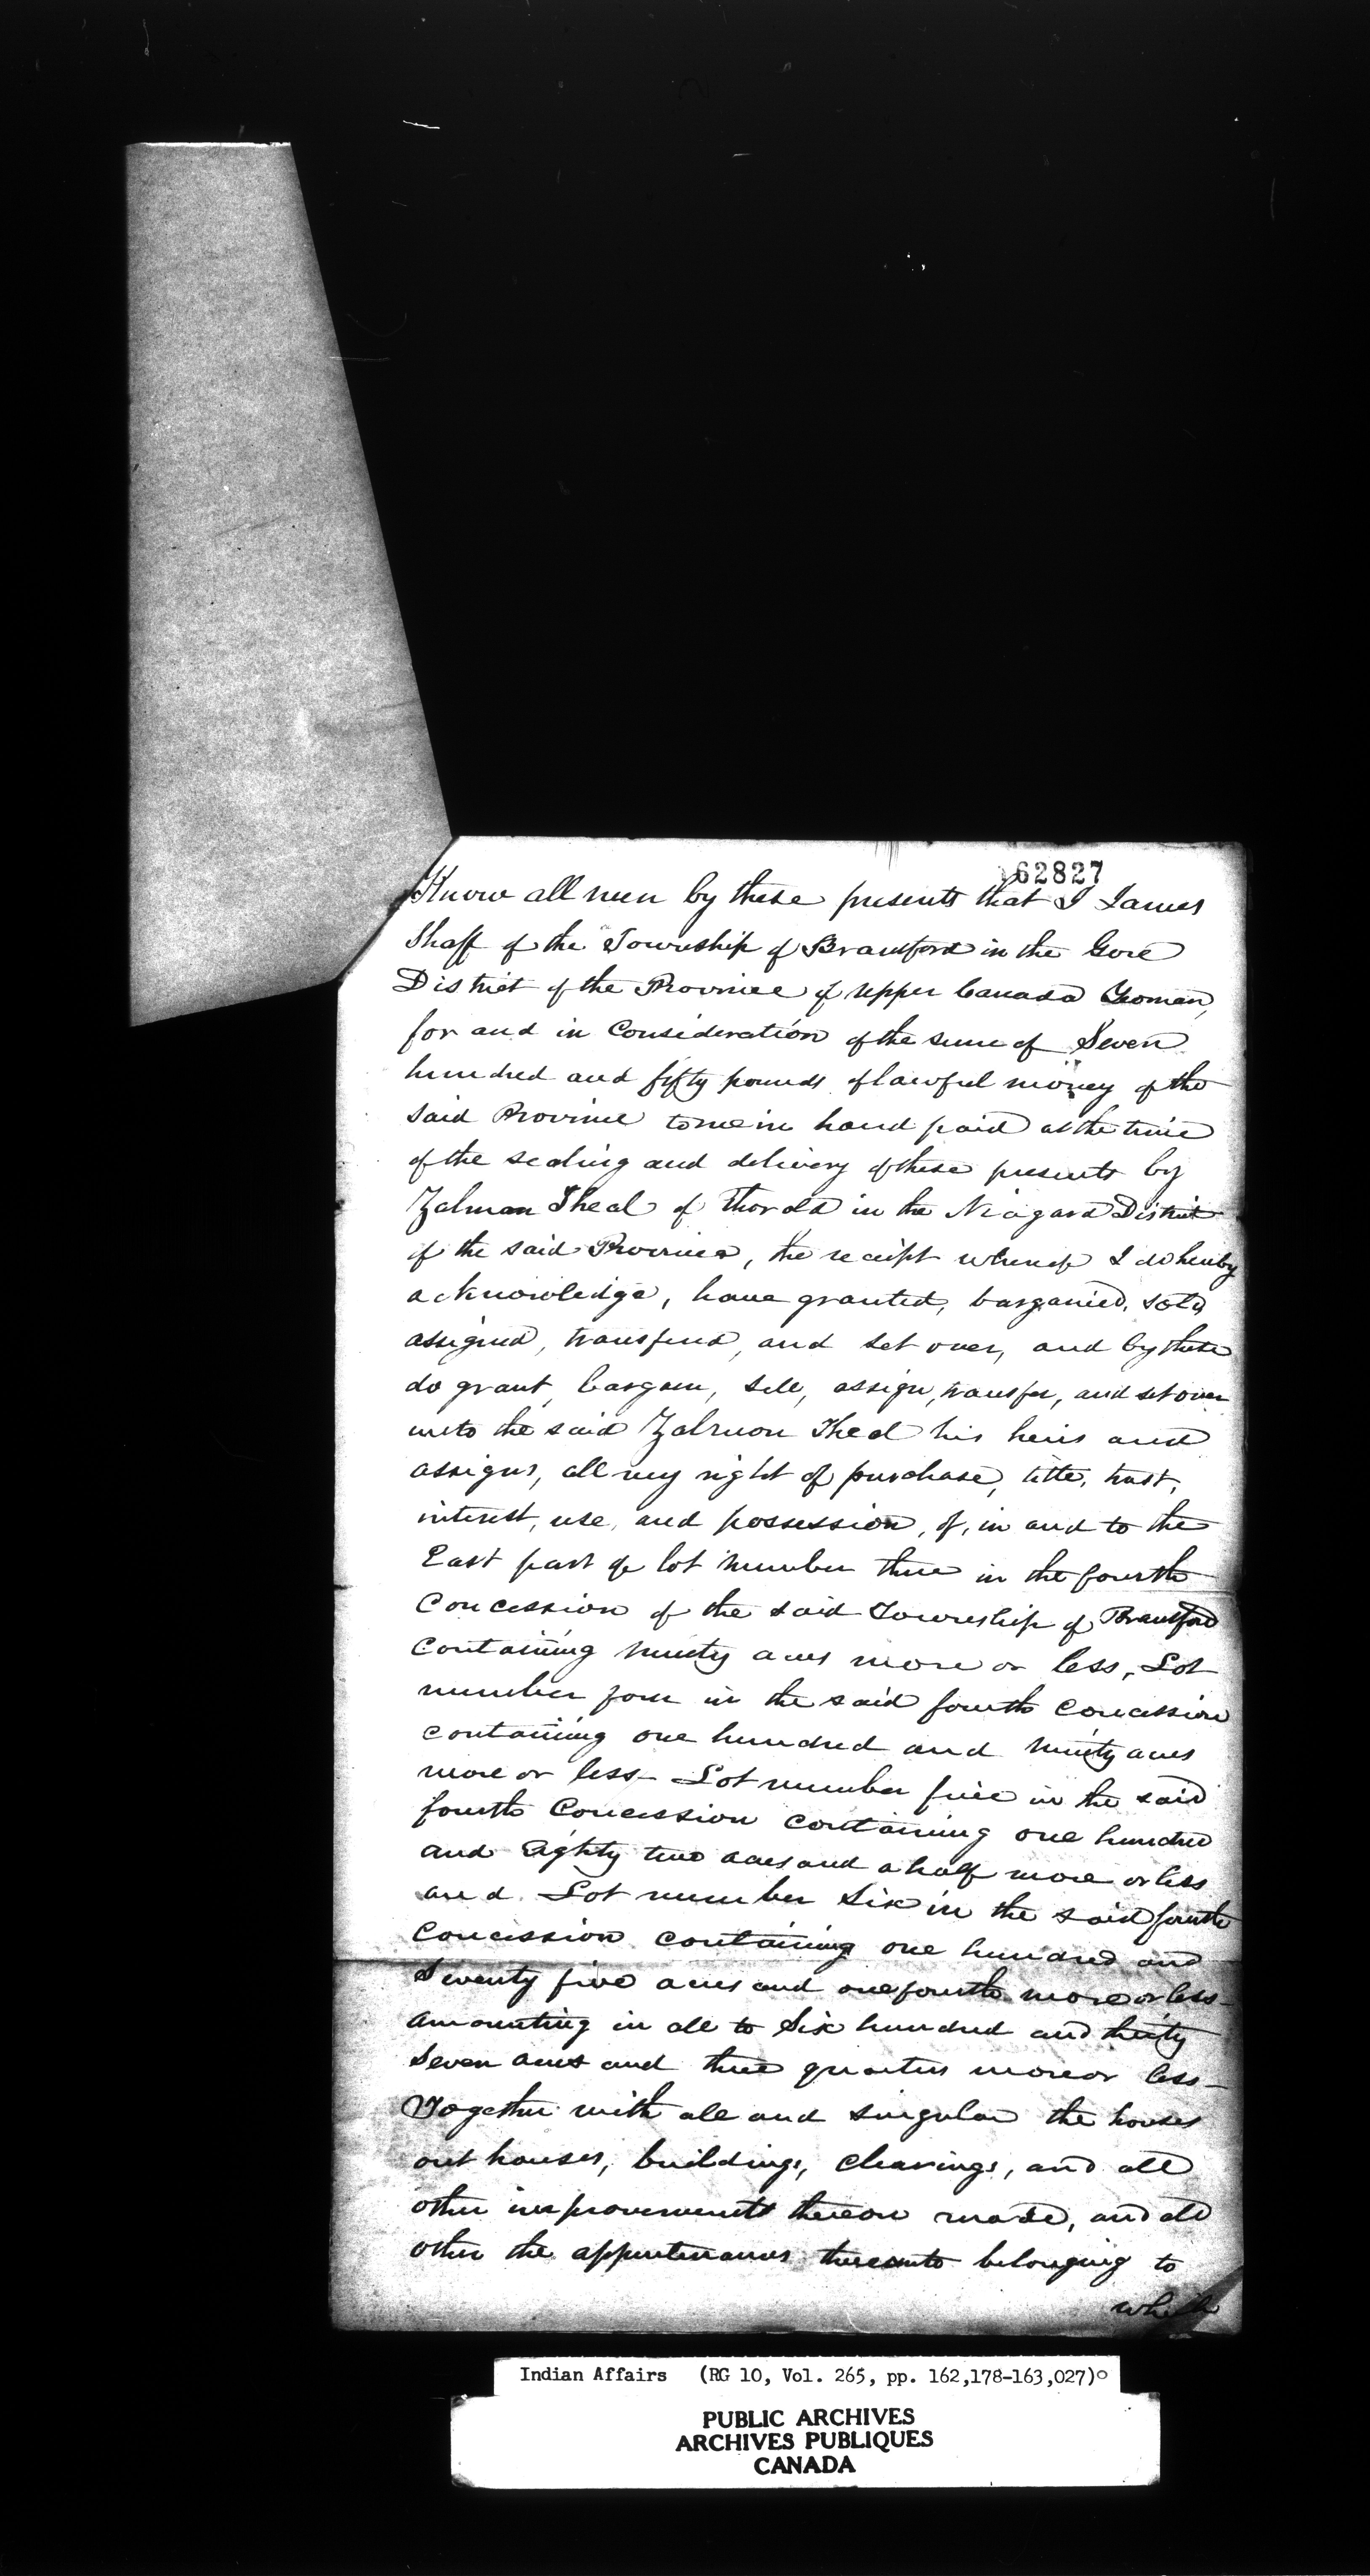 162827
Know all men by these presents that I James
Shaff of the Township of Brantford in the Gore
District of the Province of Upper Canada Yeoman,
for and in Consideration of the sum of Seven
hundred and fifty pounds of lawful money of the
said Province to me in hand paid at the time
of the sealing and delivery of these presents by
Zalman Theal of Thorold in the Niagara District
of the said Province, the receipt whereof I do hereby
acknowledge, have granted, bargained, sold,
assigned, transfered, and set over, and by these
do grant, bargain, sell, assign, transfer, and set over
unto the said Zalmon Theal his heirs and
assigns, all my right of purchase, title, trust,
interest, use, and possession, of, in and to the
East part of lot number three in the fourth
Concession of the said Township of Brantford
containing ninety acres more or less, Lot
number four in the said fourth Concession
containing one hundred and ninety acres
more or less - Lot number five in the said
fourth Concession containing one hundred
and Eighty two acres and a half more or less
and Lot number Six in the said fourth
Concession containing one hundred and
Seventy five acres and one fourth more or less -
amounting in all to Six hundred and thirty
Seven acres and three quarters more or less -
Together with all and singular the houses
out houses, buildings, clearings, and all
other improvements thereon made, and all
other the appurtenances thereunto belonging to
which
Indian Affairs (RG 10, Vol. 265, pp. 162,178-163,027)
PUBLIC ARCHIVES
ARCHIVES PUBLIQUES
CANADA